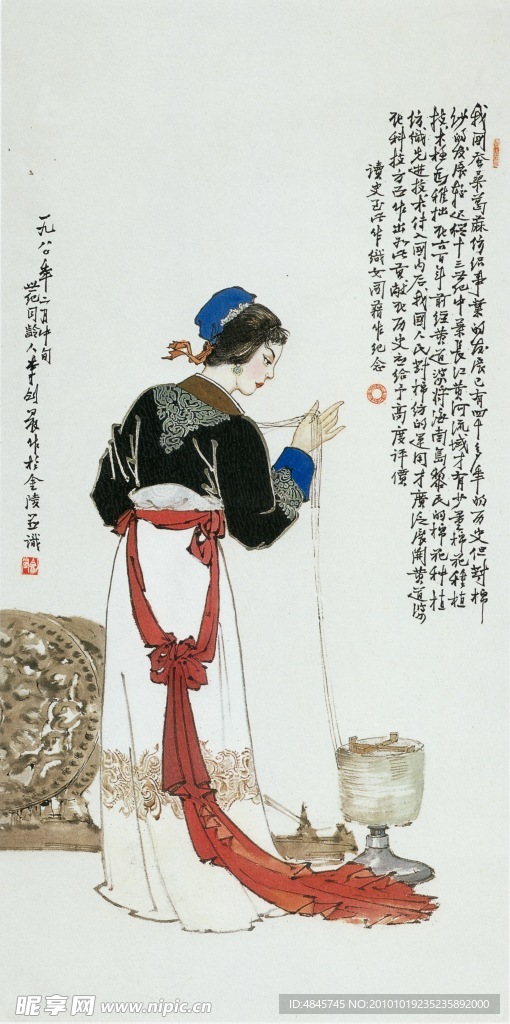 我国蚕桑葛麻纺织事业的发展已有四千多年的历史但对棉
纱的发展较迟从十三世纪中叶长江黄河流域才有少量棉花种植
技术极为稚拙在六百年前经黄道婆将海南岛黎民的棉花种植
纺织先进技术传入国内后我国人民对棉纺的运用才广泛展开黄道婆
在科技方面作出的贡献在历史应给予高度评价
读史至此作织女图藉作纪念
一九八〇年二月中旬
世纪同龄人李剑晨作于金陵并识
昵享网 www.nipic.cn
ID:4845745 NO:20101019235235892000